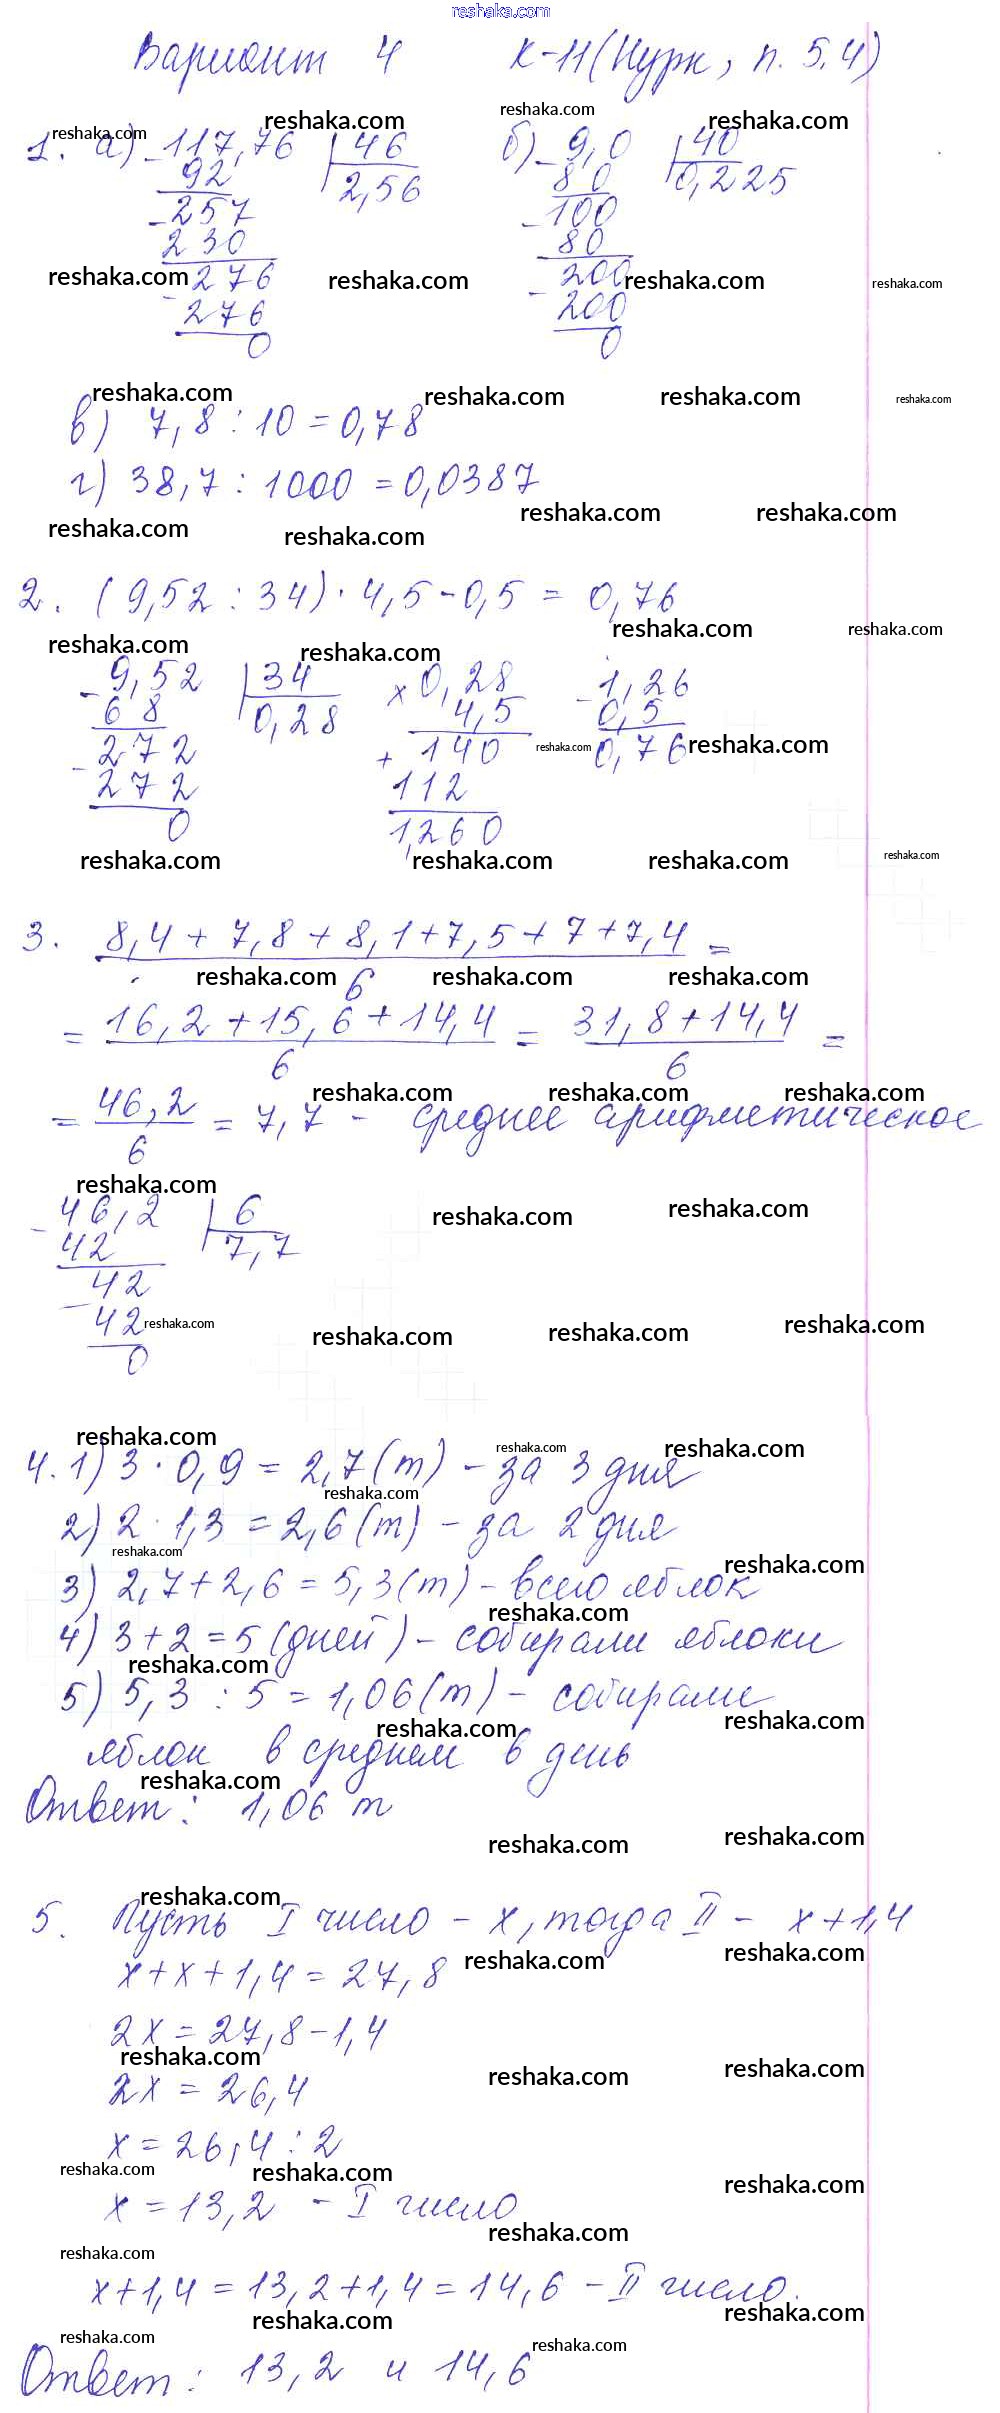 reshaka.com
Вариант 4 К-11 (Нурк, п. 5.4)
1. а) 117,76 | 46
92 2,56
257
230
276
276
0
б) 9,0 | 40
80 0,225
100
80
200
200
0
в) 7,8 : 10 = 0,78
г) 38,7 : 1000 = 0,0387
2. (9,52 : 34) · 4,5 - 0,5 = 0,76
- 9,52 | 34
68 0,28
- 272
272
0
× 0,28
4,5
+ 140
112
1,260
- 1,26
0,5
0,76
3. 8,4 + 7,8 + 8,1 + 7,5 + 7 + 7,4 =
6
= 16,2 + 15,6 + 14,4 = 31,8 + 14,4 =
6 6
= 46,2 = 7,7 - среднее арифметическое
6
- 46,2 | 6
42 7,7
- 42
42
0
4. 1) 3 · 0,9 = 2,7 (т) - за 3 дня
2) 2 · 1,3 = 2,6 (т) - за 2 дня
3) 2,7 + 2,6 = 5,3 (т) - всего яблок
4) 3 + 2 = 5 (дней) - собирали яблоки
5) 5,3 : 5 = 1,06 (т) - собирали
яблок в среднем в день
Ответ: 1,06 т
5. Пусть I число - x, тогда II - x + 1,4
x + x + 1,4 = 27,8
2x = 27,8 - 1,4
2x = 26,4
x = 26,4 : 2
x = 13,2 - I число
x + 1,4 = 13,2 + 1,4 = 14,6 - II число.
Ответ: 13,2 и 14,6